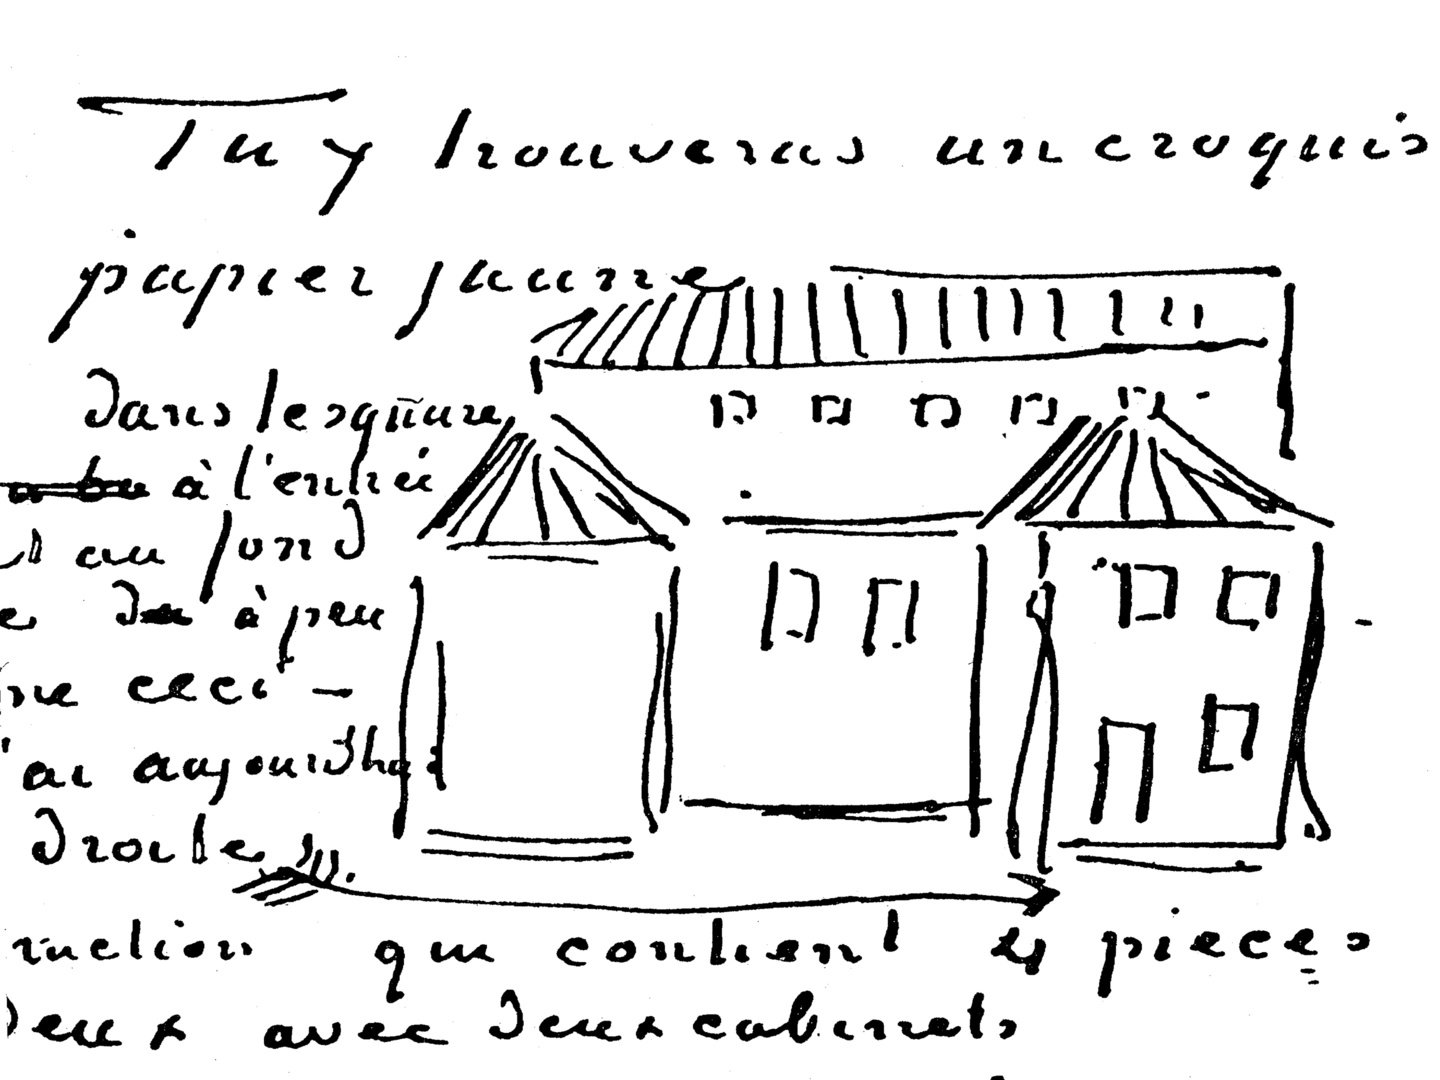 Tu y trouveras un croquis
papier jaune
dans le square
à l'entrée
au fond
de à peu
ceci —
'ai aujourdhui
droite
ruction qui contient 4 pieces
deux avec deux cabinets